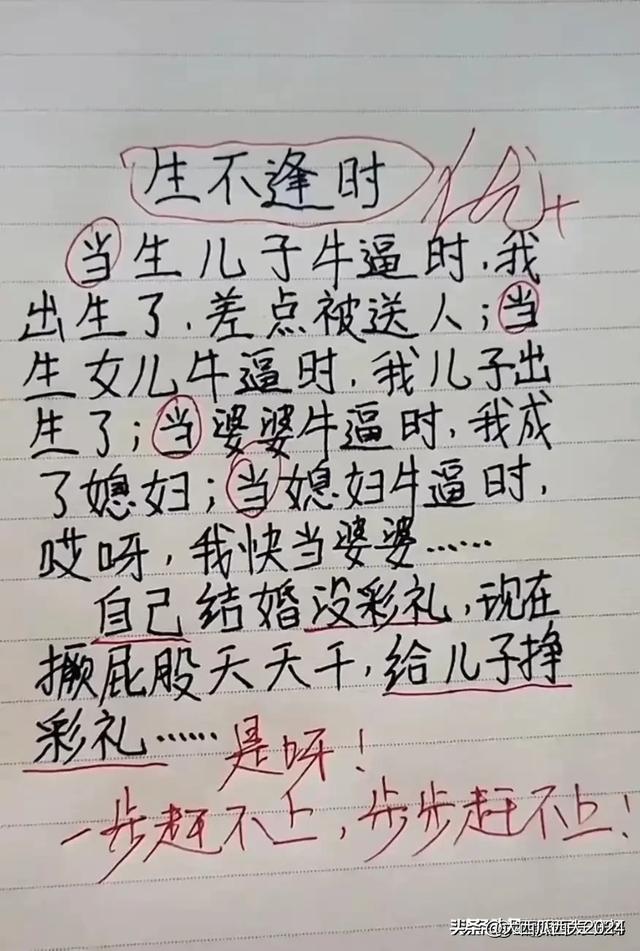 生不逢时
优+
当生儿子牛逼时,我
出生了,差点被送人;当
生女儿牛逼时,我儿子出
生了;当婆婆牛逼时,我成
了媳妇;当媳妇牛逼时,
哎呀,我快当婆婆……
自己结婚没彩礼,现在
撅屁股天天干,给儿子挣
彩礼……是呀!
一步赶不上,步步赶不上!
头条@大西瓜西大2024